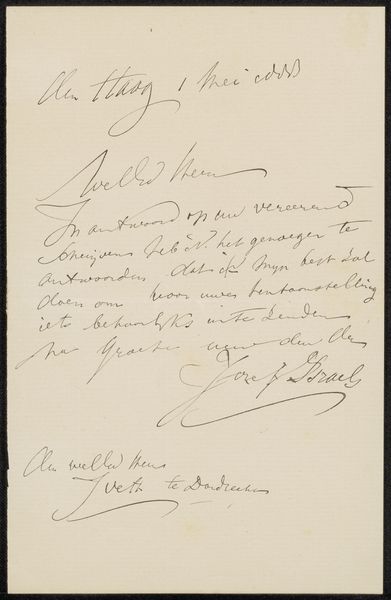 den Haag 1 Mei 1888
Weled Heer
In antwoord op uw vereerend
schrijvens heb ik het genoegen te
antwoorden dat ik mijn best zal
doen om voor uwe tentoonstelling
iets behoorlijks in te zenden
na Groete
Jozef Israels
den weled Heer
Veth te Dordrecht